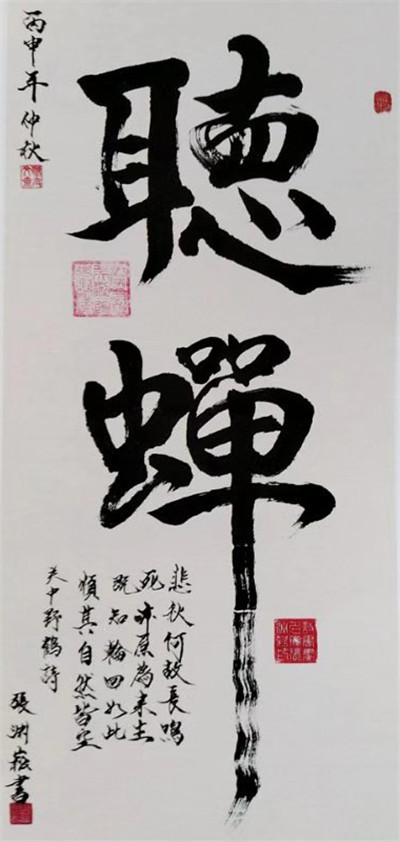 聽蟬
悲秋何故長鳴
死亦原為来生
既知輪回如此
順其自然皆空
关中野鶴詩
張洲崧書
丙申年仲秋